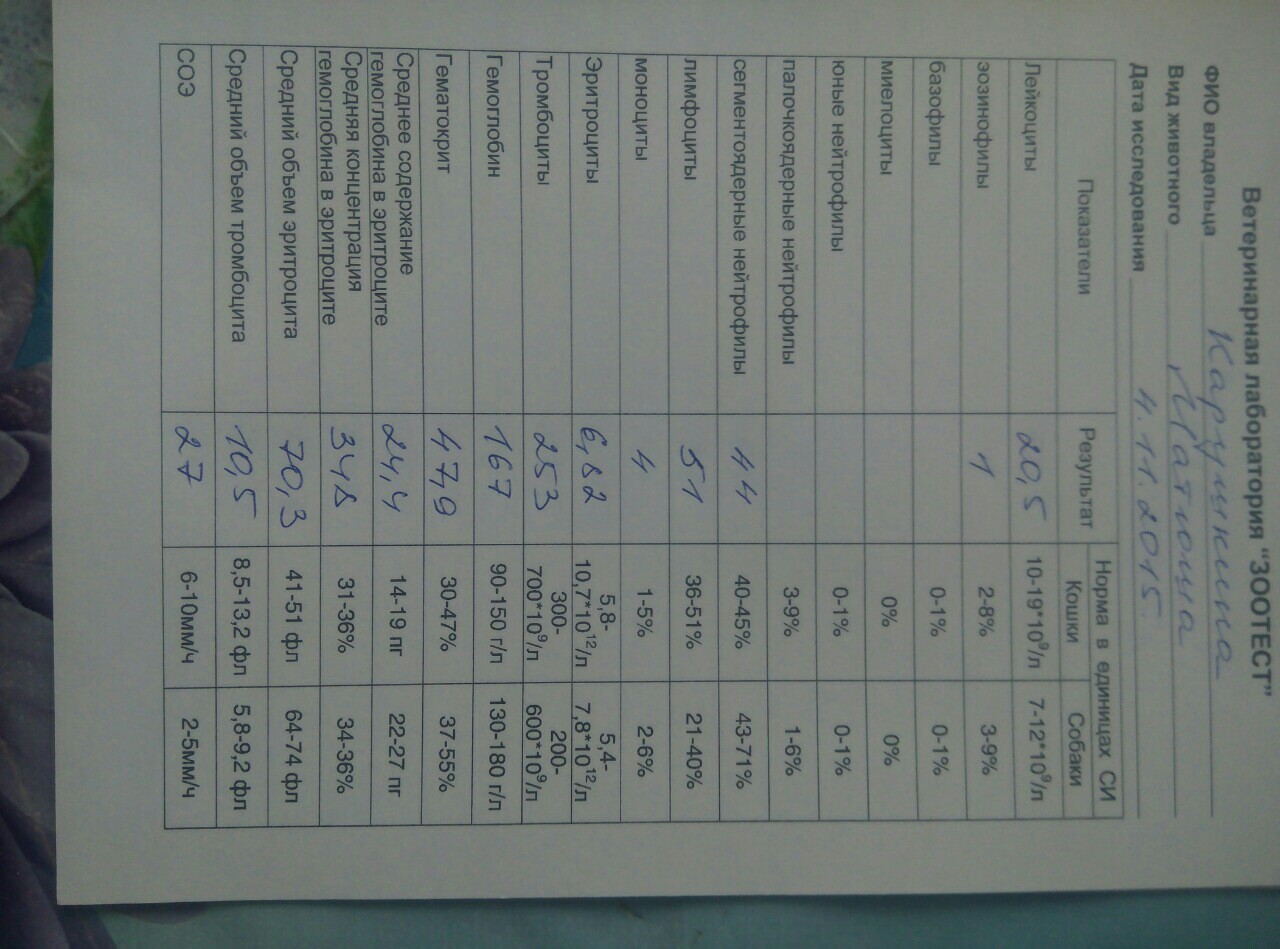 Ветеринарная лаборатория "ЗООТЕСТ"
ФИО владельца Карушкина
Вид животного Матюша
Дата исследования 4.11.2015
Показатели Результат Норма в единицах СИ
Кошки Собаки
Лейкоциты 20,5 10-19*10⁹/л 7-12*10⁹/л
эозинофилы 1 2-8% 3-9%
базофилы 0-1% 0-1%
миелоциты 0% 0%
юные нейтрофилы 0-1% 0-1%
палочкоядерные нейтрофилы 3-9% 1-6%
сегментоядерные нейтрофилы 44 40-45% 43-71%
лимфоциты 51 36-51% 21-40%
моноциты 4 1-5% 2-6%
Эритроциты 6,82 5,8- 5,4-
10,7*10¹²/л 7,8*10¹²/л
Тромбоциты 253 300- 200-
700*10⁹/л 600*10⁹/л
Гемоглобин 167 90-150 г/л 130-180 г/л
Гематокрит 47,9 30-47% 37-55%
Среднее содержание
гемоглобина в эритроците 24,4 14-19 пг 22-27 пг
Средняя концентрация
гемоглобина в эритроците 348 31-36% 34-36%
Средний объем эритроцита 70,3 41-51 фл 64-74 фл
Средний объем тромбоцита 10,5 8,5-13,2 фл 5,8-9,2 фл
СОЭ 27 6-10мм/ч 2-5мм/ч